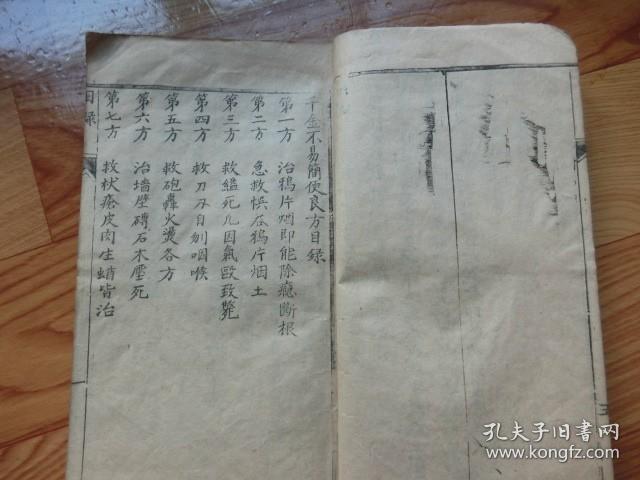 千金不易簡便良方目録
第一方 治鴉片烟即能除癮斷根
第二方 急救悞吞鴉片烟土
第三方 救縊死凡因氣歐致斃
第四方 救刀刃自刎咽喉
第五方 救砲轟火燙各方
第六方 治墻壁磚石木壓死
第七方 救杖瘡皮肉生蛆皆治
目録
三
孔夫子旧書网
www.kongfz.com